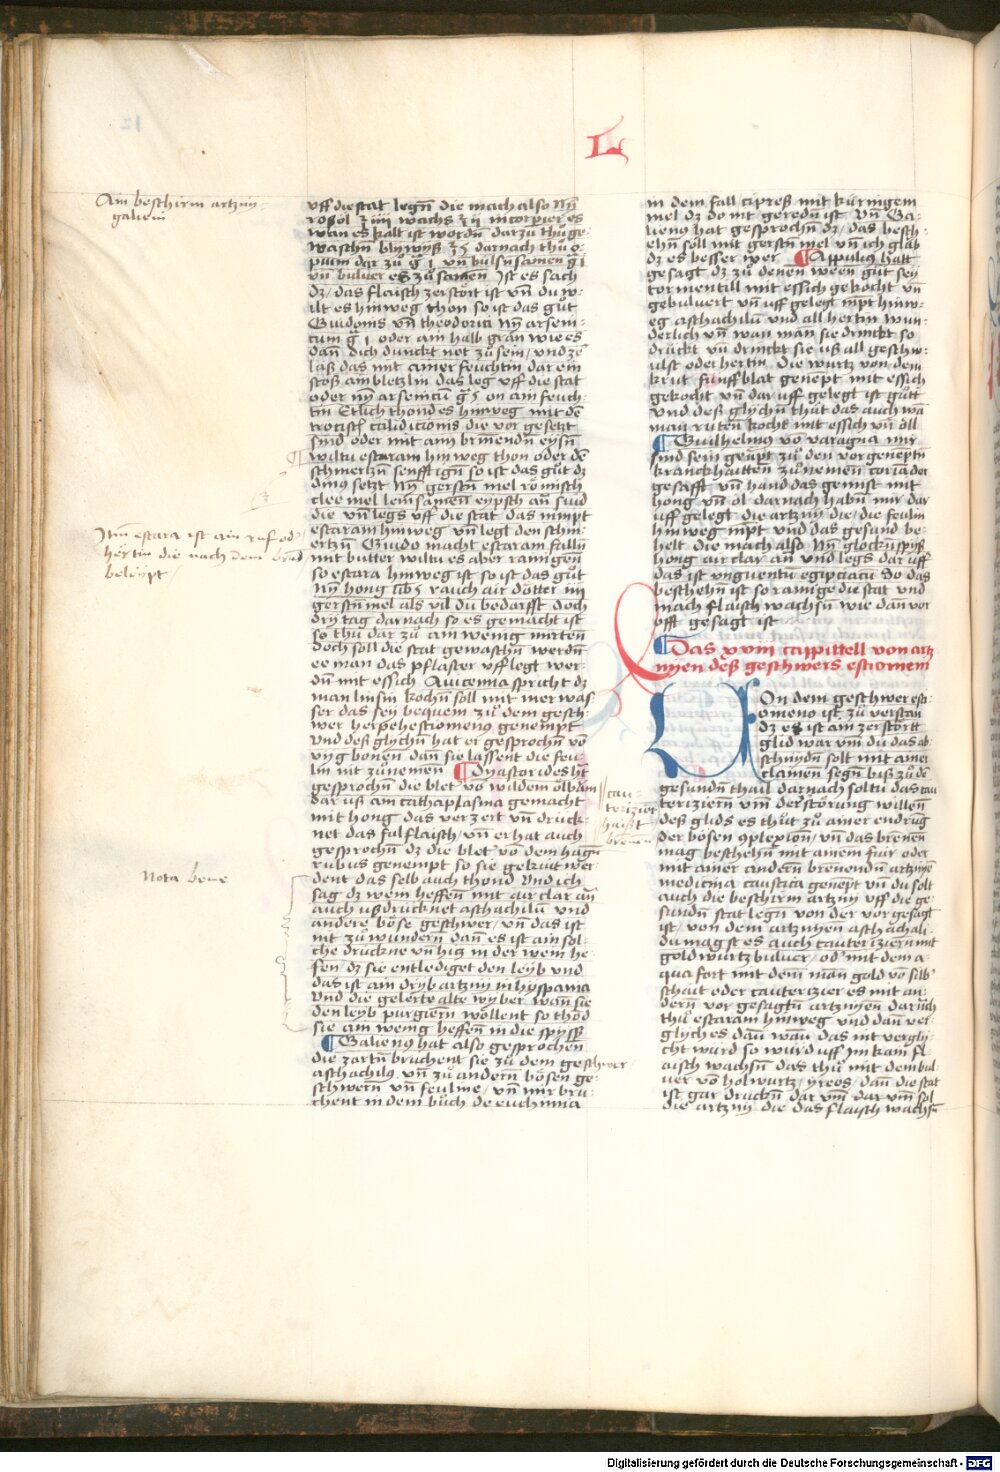 L
Ain beschirm artzny
galieni
vff die stat legñ die mach also Nȳ
rosöl ʒ iiij wachs ʒ ij incorpier es
wan es kalt ist wordñ darzu thů ge
waschñ blywyß ʒ darnach thů o
pium dar zů vñ bülsñ samen
vñ bulver es zů samen Ist es sach
dz / das flaisch zerstört ist vñ du w
ilt es hinweg thon so ist das gůt
Guidonis vñ theodorici Nȳ arseni
cum oder ain halb gran wie es
dañ dich dunckt not zů sein / vnd ze
laß das mit ainer feuchtin dar ein
stöß ain bletzlin das leg vff die stat
oder nȳ arsenicum on ain feuch
tin Etlich thond es hinweg mit dē
trocisci calidicionis die vor gesetzt
sind oder mit aim brinendñ eysñ
wiltu estaram hinweg thon oder dē
schmertzñ senfftigñ so ist das gůt dz
dinꝰ setzt Nȳ gerstñ mel römisch
clee mel leinsamen eypsch añ siud
die vñ legs vff die stat das nimpt
estaram hinweg vñ legt den schm
ertzñ Guido macht estaram fallñ
mit butter wiltu es aber rainigen
so estara hinweg ist so ist das gůt
Nȳ hong rauch air dötter iiij
gerstñ mel als vil du bedarfft Doch
dry tag darnach so es gemacht ist
so thů dar zů ain wenig mirren
Doch soll die stat gewaschñ werdñ
ee man das pflaster vff legt wer
dñ mit essich Auicenna spricht dz
man linsin kochñ soll mit mer was
ser das sey bequem zů dem gesch
wer herpehestiomenꝰ genempt
vnd deß glychñ hat er gesprochñ vō
vng bonen dañ sie lassent die feu
lin nit zů nemen ¶ Dyastorides ht
gesprochñ die blet vō wildem ölbäm
dar uß ain cathaplasma gemacht
mit hong das verzert vñ drück
net das ful flaisch / vñ er hat auch
gesprochñ dz die blet vō dem hagñ
rubus genempt so sie geküt wer
dent das selb auch thond Vnd ich
sag dz wein heffen mit air clar añ
auch ußdrücknet aschachilū vnd
andere böse geschwer / vñ das ist
nit zů wundern dañ es ist ain sol
che drückne vñ hiz in der wein he
fen / dz sie entlediget den leyb vnd
das ist ain dryb artzny in hyspania
Vnd die gelerte alte wyber wan sie
den leyb purgiern wöllent so thod
sie ain wenig heffen in die spyß
¶ Galienꝰ hat also gesprochen
die zartñ bruchent sie zů dem geschwer
aschachilꝰ vñ zů andern bösen ge
schwern vñ feulnie / vñ mir bru
chent in dem bůch de euchimia
estara ist ain ruf od
hertin die nach dem brand
belypt /
Nota bene
in dem fall cipreß mit küringem
mel dz do mit geredñ ist Vñ Ga
lienꝰ hat gesprochñ dz / das besch
ehñ söll mit gerstñ mel vñ ich glab
dz es besser wer ¶ Appuliꝰ hatt
gesagt dz zů denen ween gůt sey
tormentill mit essich gekocht vñ
gebulvert vñ vff gelegt nipt hinw
eg aschachilū vnd all hertin wun
derlich vñ wan man sie drinckt so
drückt vñ drinckt sie uß all geschw
ulst oder hertin Die wurtz von dem
krut fünffblat genēpt mit essich
gekocht vñ dar vff gelegt ist gůtt
Vnd deß glychñ thůt das auch wā
man ruten kocht mit essich vñ öll
¶ Guilhelmꝰ vō varagna mir
sind sein genēpt zů den vor genēptñ
kranckhaitten zů nemen coriāder
gesafft vñ hand das gemist mit
hong vñ öl darnach habñ mir dar
vff gelegt die artzny die / die feulin
hinweg nīpt vnd das gesund be
helt die mach also Nȳ glocknspyß
hong air clar añ vnd legs dar vff
das ist vnguentū egipciacū So das
beschehñ ist so rainige die stat vnd
mach flaisch wachsñ wie dañ vor
offt gesagt ist
¶ Das xviii cappittell von artz
nyen deß geschwers estiomeni
Von dem geschwer esti
omeno ist zů verstan
dz es ist ain zerstörtt
glid war vm du das ab
schnydñ solt mit ainer
clamen segñ biß zů dē
gesundñ thail darnach soltu das cau
teriziern vm der störung willen
deß glids es thůt zů ainer endrūg
der bösen ꝯplexion / vñ das brenen
mag beschehñ mit ainem fiur oder
mit ainer andern brenendñ artznye
medicina caustica genēpt vñ du solt
auch die beschirm artzny vff die ge
sundñ stat legñ von der vor gesagt
ist / von dem artznyen aschachali
du magst es auch cauteriziern mit
goldwurtz bulver / od mit dem a
qua fort mit dem man gold vō silb
schait oder cauterizier es mit an
dern vor gesagtñ artznyen darnäch
thů estaram hinweg vnd dañ ver
glych es dañ wañ das nit vergly
cht würd so würd vff im kain fl
aisch wachsñ das thů mit dem bul
ver vō holwurtz / yreos / dañ die stat
ist gar drückñ dar vm dar vm sol
die artzny die das flaisch wachsñ
cau
terizier
haißt
brenen